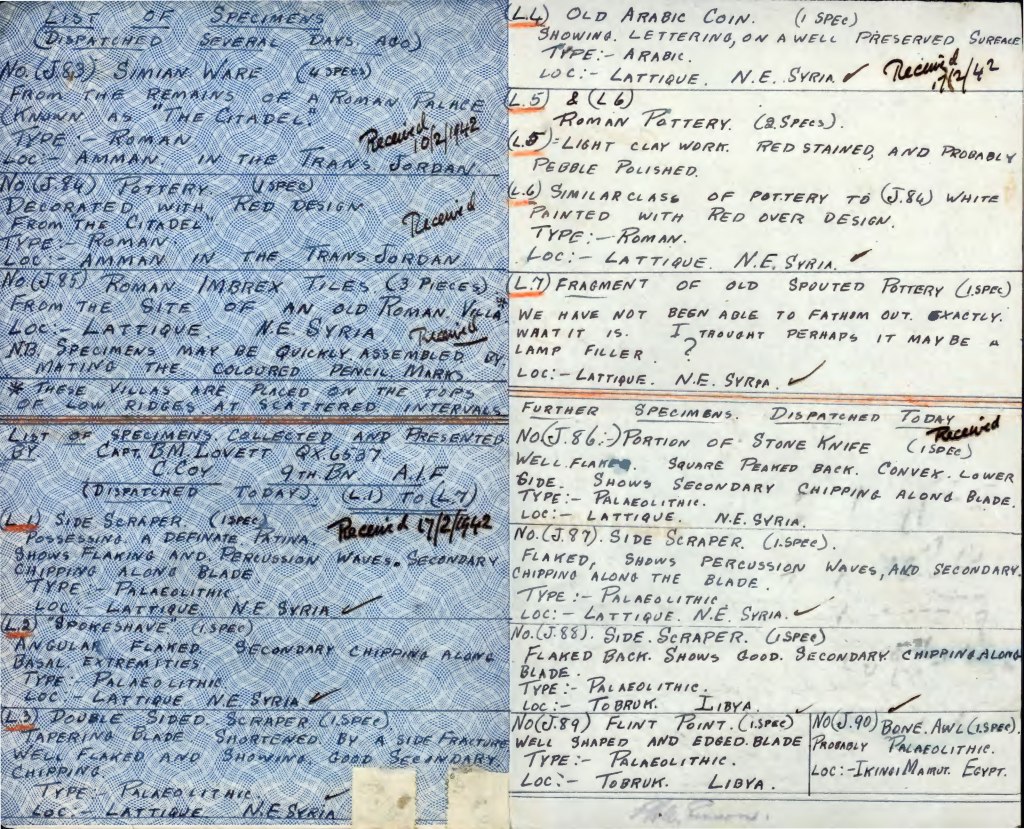 LIST OF SPECIMENS
(DISPATCHED SEVERAL DAYS. AGO)
NO. (J.83) SIMIAN WARE (4 SPECS)
FROM THE REMAINS OF A ROMAN PALACE
(KNOWN AS "THE CITADEL"
TYPE:- ROMAN
LOC:- AMMAN. IN THE TRANS JORDAN
Received 10/2/1942
NO. (J.84) POTTERY (1 SPEC)
DECORATED WITH RED DESIGN
FROM THE CITADEL"
TYPE:- ROMAN.
LOC:- AMMAN IN THE TRANS JORDAN
Received
NO. (J.85) ROMAN IMBREX TILES (3 PIECES)
FROM THE SITE OF AN OLD ROMAN. VILLA
LOC:- LATTIQUE. N.E SYRIA
Received
N.B. SPECIMENS MAY BE QUICKLY ASSEMBLED BY
MATING THE COLOURED PENCIL MARKS
* THESE VILLAS ARE PLACED ON THE TOPS
OF LOW RIDGES AT SCATTERED INTERVALS
LIST OF SPECIMENS COLLECTED AND PRESENTED
BY CAPT. B.M. LOVETT QX.6537
C.COY 9TH BN A.I.F
(DISPATCHED TODAY). (L.1) TO (L.7)
(L.1) SIDE SCRAPER. (1 SPEC)
Received 17/2/1942
POSSESSING A DEFINATE PATINA.
SHOWS FLAKING AND PERCUSSION WAVES. SECONDARY
CHIPPING ALONG BLADE
TYPE:- PALAEOLITHIC.
LOC:- LATTIQUE. N.E SYRIA ✓
(L.2) "SPOKESHAVE" (1.SPEC)
ANGULAR FLAKED. SECONDARY CHIPPING ALONG
BASAL EXTREMITIES
TYPE:- PALAEOLITHIC
LOC:- LATTIQUE N.E SYRIA ✓
(L.3) DOUBLE SIDED SCRAPER (1.SPEC)
TAPERING BLADE SHORTENED BY A SIDE FRACTURE
WELL FLAKED AND SHOWING GOOD SECONDARY
CHIPPING.
TYPE:- PALAEOLITHIC. ✓
LOC:- LATTIQUE N.E SYRIA
(L.4) OLD ARABIC COIN. (1 SPEC)
SHOWING. LETTERING, ON A WELL PRESERVED SURFACE
TYPE:- ARABIC.
LOC:- LATTIQUE. N.E. SYRIA ✓
Received 17/2/42
(L.5) & (L 6)
ROMAN POTTERY. (2 SPECS).
(L.5) = LIGHT CLAY WORK. RED STAINED, AND PROBABLY
PEBBLE POLISHED.
(L.6) SIMILAR CLASS OF POTTERY TO (J.84) WHITE
PAINTED WITH RED OVER DESIGN.
TYPE:- ROMAN.
LOC:- LATTIQUE. N.E. SYRIA. ✓
(L.7) FRAGMENT OF OLD SPOUTED POTTERY (1.SPEC)
WE HAVE NOT BEEN ABLE TO FATHOM OUT. EXACTLY.
WHAT IT IS. I THOUGHT PERHAPS IT MAY BE A
LAMP FILLER. ?
LOC:- LATTIQUE. N.E. SYRIA. ✓
FURTHER SPECIMENS. DISPATCHED TODAY
Received
NO (J.86:-) PORTION OF STONE KNIFE (1 SPEC)
WELL. FLAKED. SQUARE PEAKED BACK. CONVEX. LOWER
SIDE. SHOWS SECONDARY CHIPPING ALONG BLADE.
TYPE:- PALAEOLITHIC.
LOC:- LATTIQUE. N.E. SYRIA.
NO. (J.87). SIDE SCRAPER. (1.SPEC).
FLAKED, SHOWS PERCUSSION WAVES, AND SECONDARY.
CHIPPING ALONG THE BLADE.
TYPE:- PALAEOLITHIC
LOC:- LATTIQUE. N.E. SYRIA. ✓
NO. (J.88). SIDE. SCRAPER. (1 SPEC)
FLAKED BACK. SHOWS GOOD. SECONDARY CHIPPING ALONG
BLADE.
TYPE:- PALAEOLITHIC.
LOC:- TOBRUK. LIBYA. ✓
NO (J.89) FLINT POINT. (1.SPEC) ✓
WELL SHAPED AND EDGED. BLADE
TYPE:- PALAEOLITHIC.
LOC:- TOBRUK. LIBYA.
NO (J.90) BONE. AWL (1.SPEC).
PROBABLY PALAEOLITHIC.
LOC:- IKINGI MARUT. EGYPT.